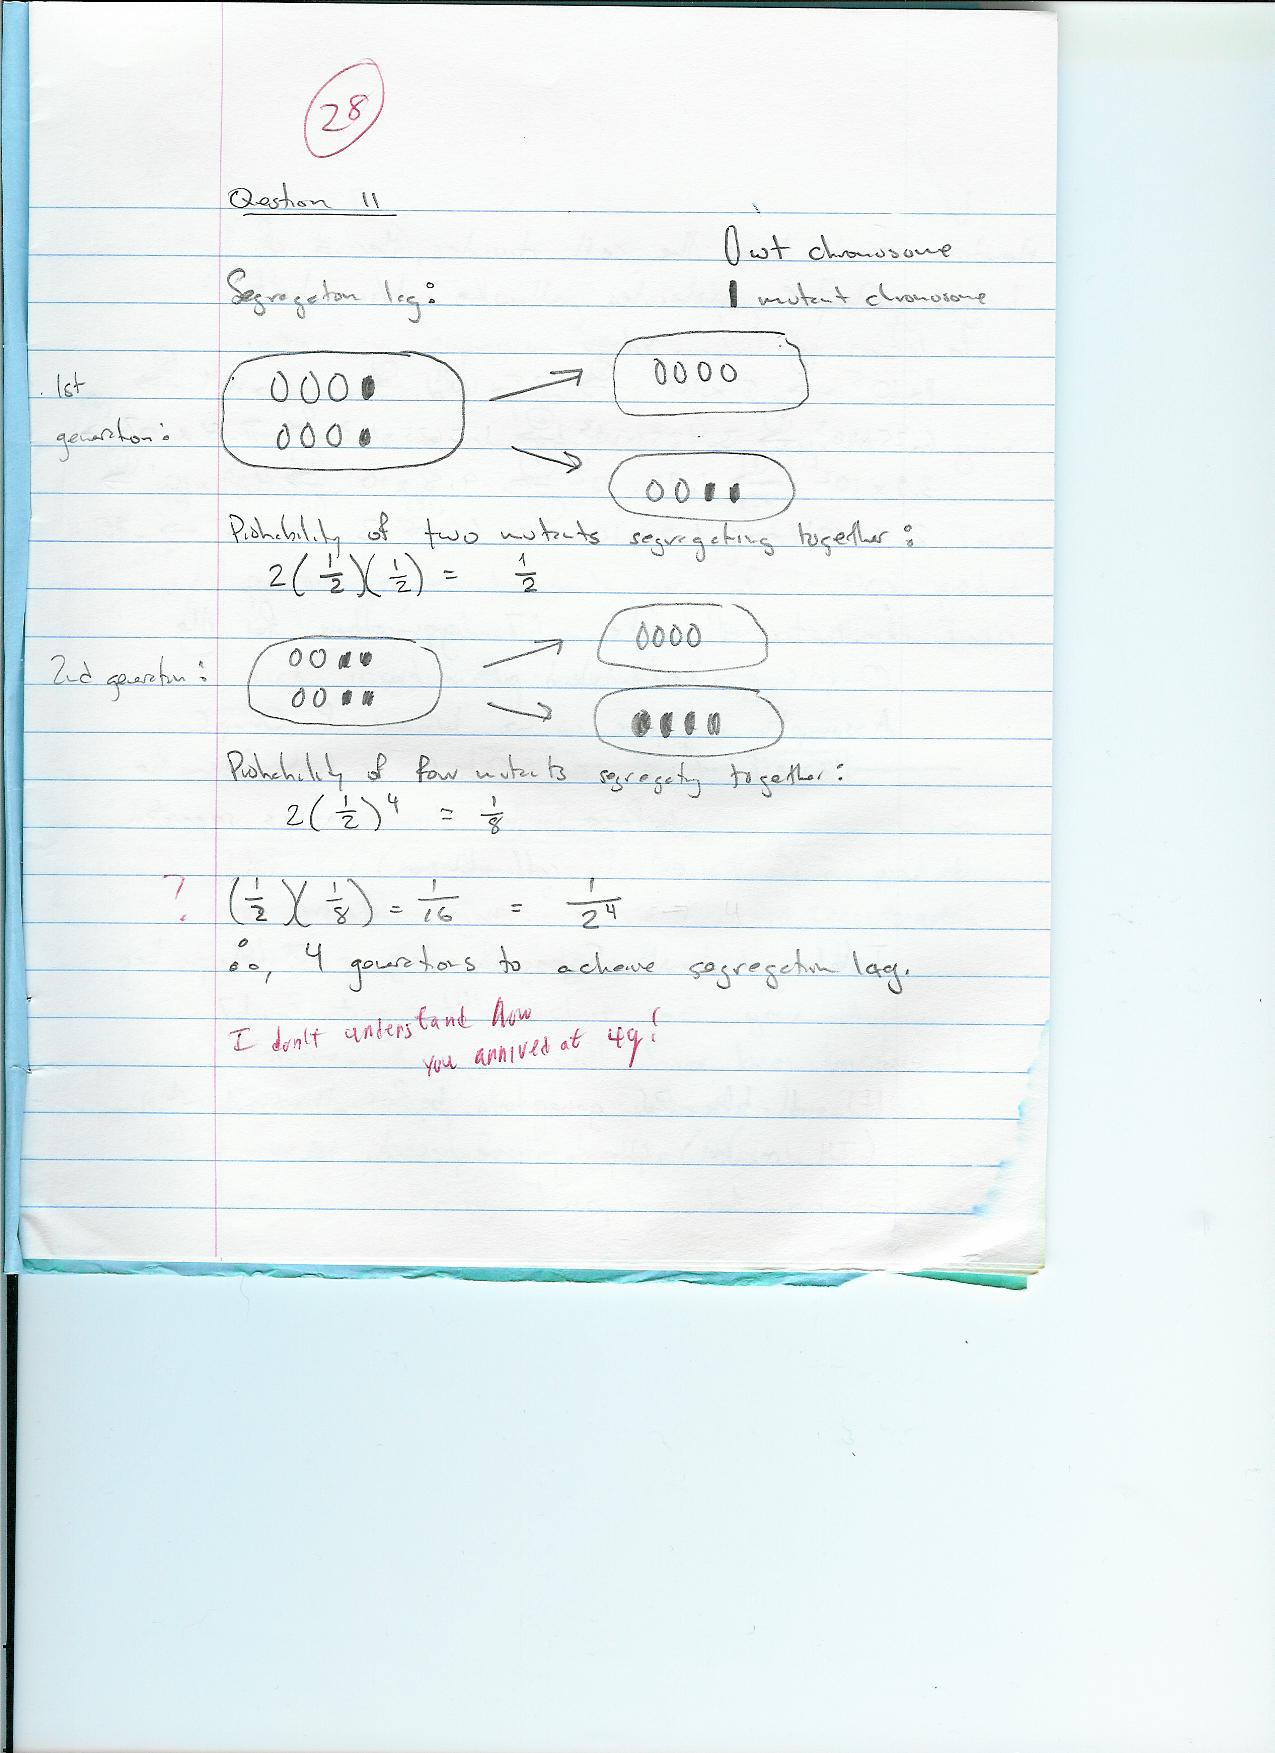 28
Question 11
wt chromosome
Segregation lag:
mutant chromosome
1st
generation:
Probability of two mutants segregating together:
2(1/2)(1/2) = 1/2
2nd generation:
Probability of four mutants segregating together:
2(1/2)^4 = 1/8
? (1/2)(1/8) = 1/16 = 1/2^4
∴, 4 generations to achieve segregation lag.
I don't understand how
you arrived at 4g!